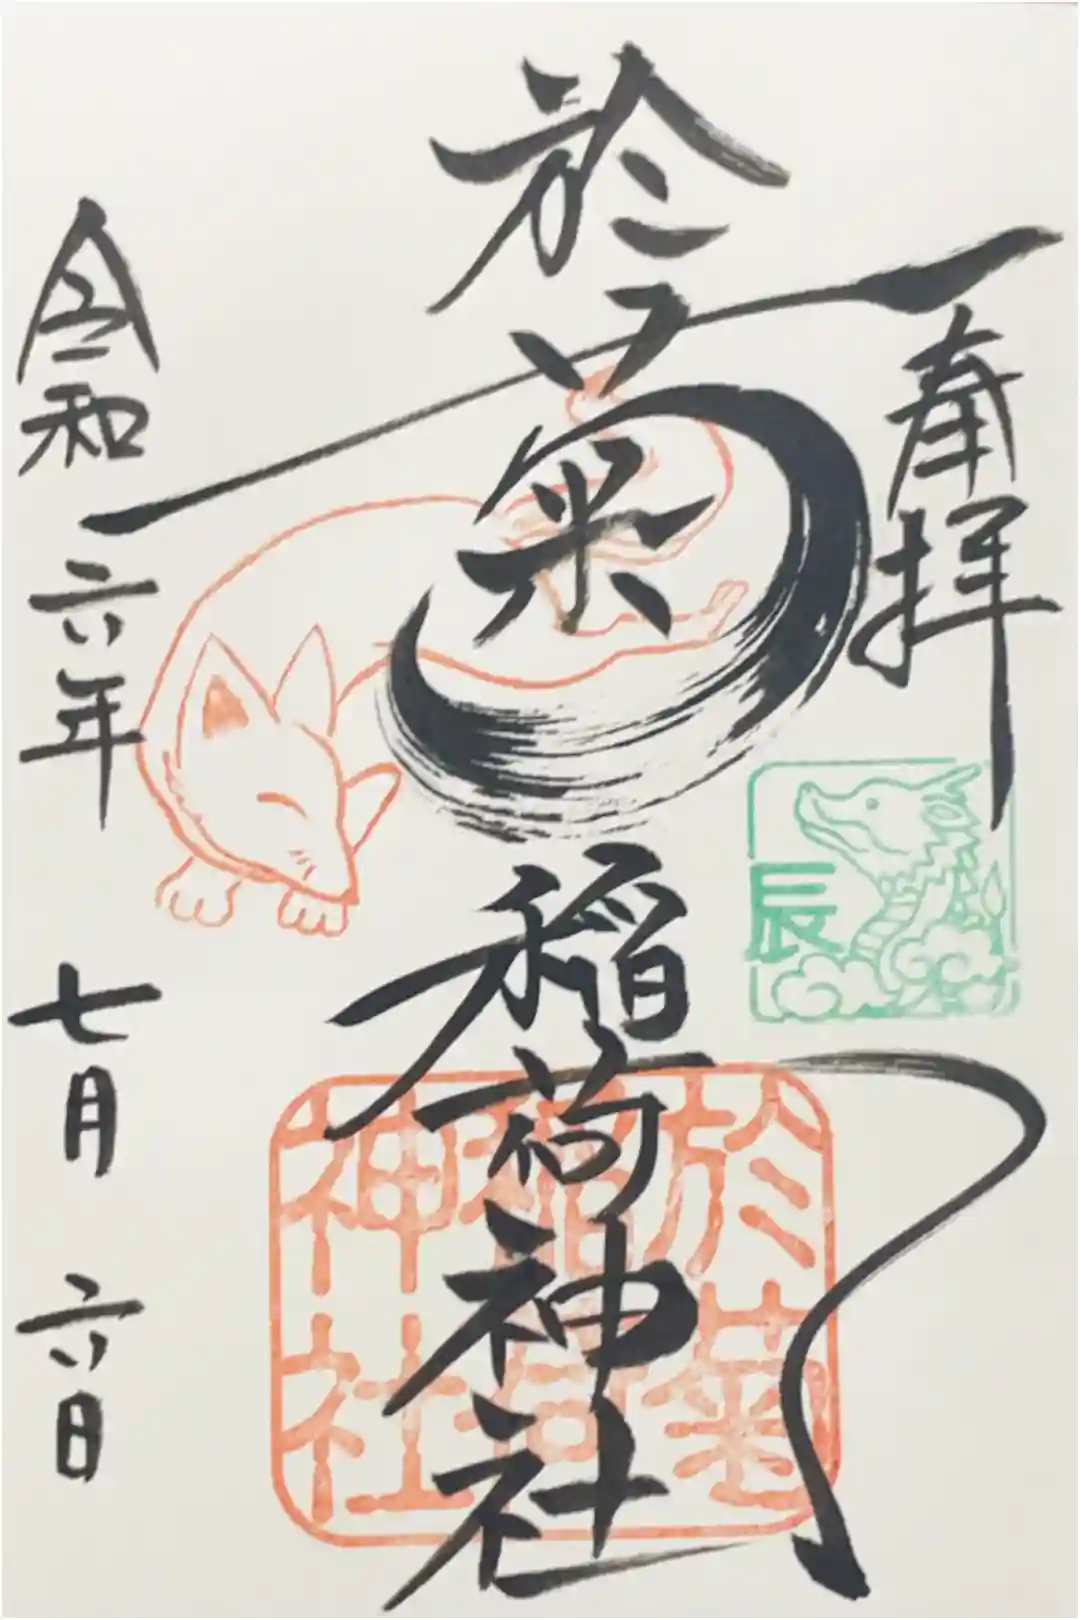 奉拝
於菊稲荷神社
令和六年 七月 六日
辰
於菊
稲荷
神社